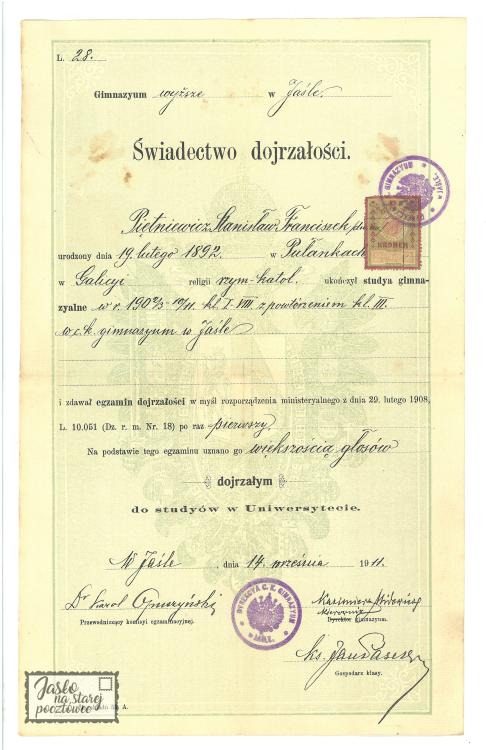 L. 28.
Gimnazyum wyższe w Jaśle.
Świadectwo dojrzałości.
Pietniewicz Stanisław Franciszek
urodzony dnia 19. lutego 1892. w Pułankach
w Galicyi religii rzym-katol. ukończył studya gimna-
zyalne w r. 1902/3-10/11. kl. I-VIII. z powtórzeniem kl. III.
w c. k. gimnazyum w Jaśle
i zdawał egzamin dojrzałości w myśl rozporządzenia ministeryalnego z dnia 29. lutego 1908,
L. 10.051 (Dz. r. m. Nr. 18) po raz pierwszy.
Na podstawie tego egzaminu uznano go większością głosów
dojrzałym
do studyów w Uniwersytecie.
W Jaśle, dnia 14 września 1911.
Dr Karol
Przewodniczący komisyi egzaminacyjnej.
DYREKCYA C. K. GIMNAZYUM
JAŚLE
Kazimierz
kierownik
Dyrektor gimnazyum.
ks. Jan
Gospodarz klasy.
KRONEN
Jasło
na starej
pocztówce